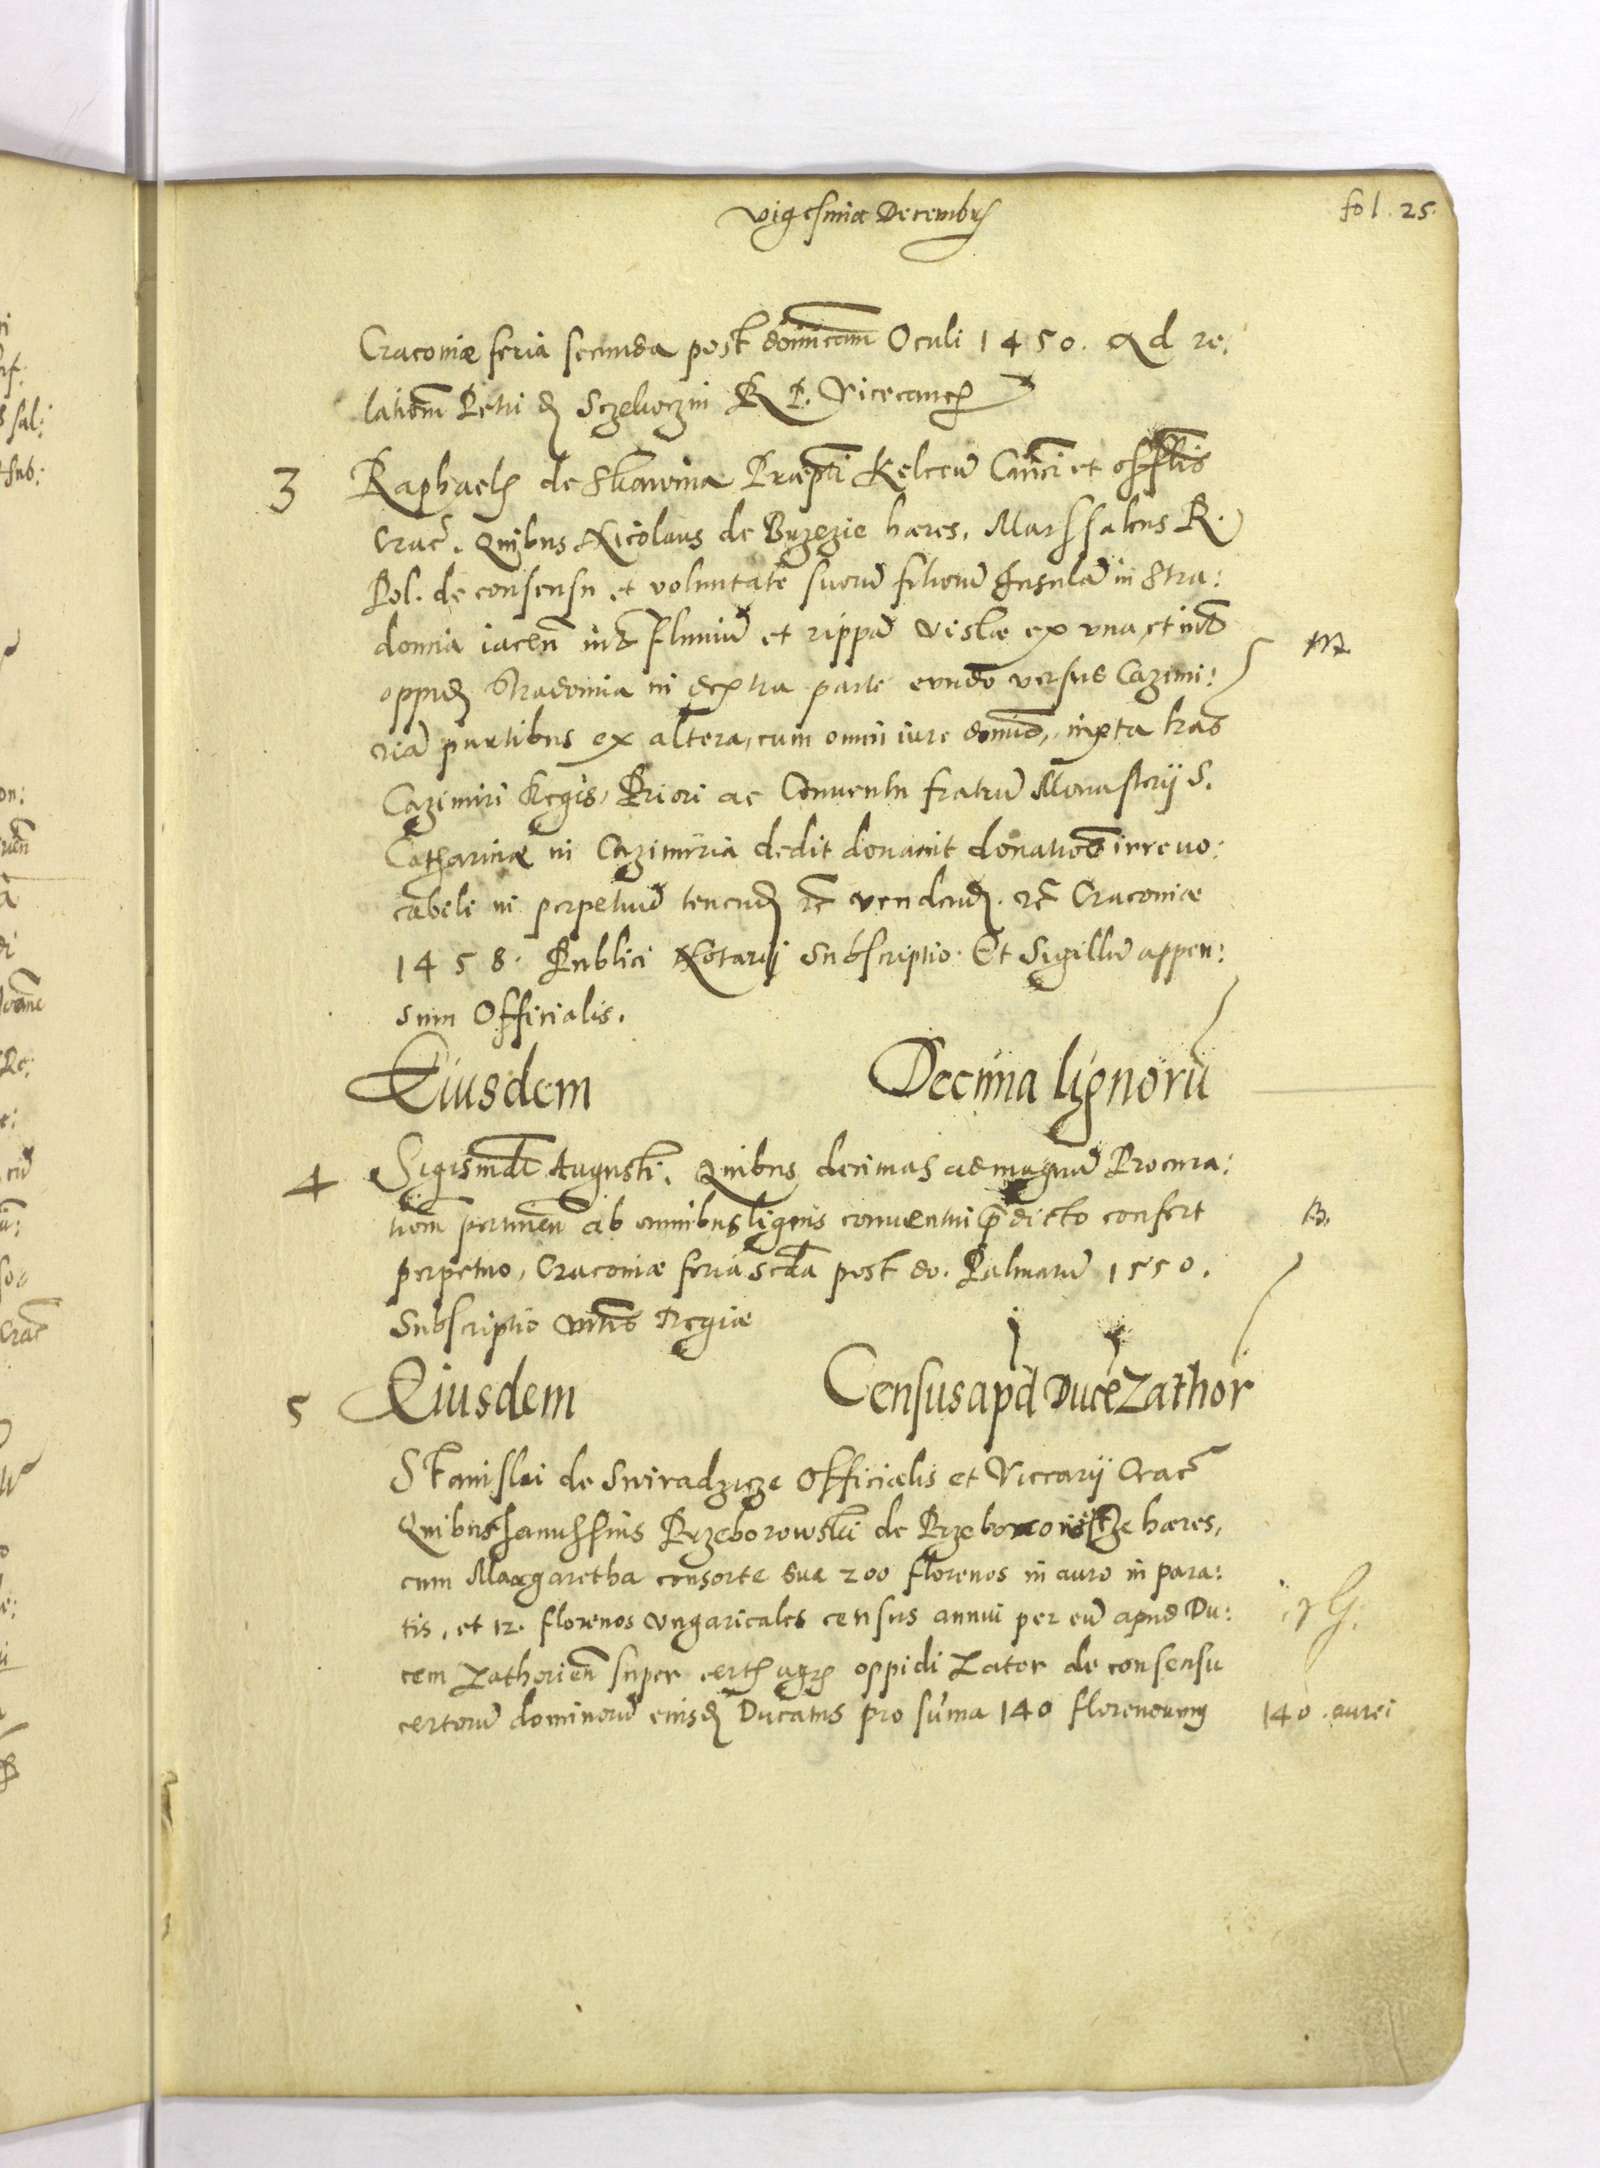 vigesima Decembr̃
fol. 25.
Cracoviæ feria secunda post domīcam Oculi 1450. Ad re:
lationẽ Petri d̃ Sczekoczin R P. Vicecancꝭ
3 Raphaelꝭ de Skawina Præpti Kelceñ Canci et offlis
Crac̃. Quibus Nicolaus de Brzezie hæres, Marssalcus R.
Pol. de consensu et voluntate suorũ filiorũ Insulã in Stra:
domia iaceñ int̃ Fluuiũ et rippã Vislæ ex vna, et int̃
oppid̃ Stradomia in dextra parte eundo versus Cazimi:
M.
riã partibus ex altera, cum omni iure domīo, iuxta lr̃as
Cazimiri Regis, Priori ac Conuentu fratrũ Monasterij S.
Catharinæ in Cazimiria dedit donauit donatioẽ irreuo:
cabili in perpetuũ tenend̃ etc̃ vendend̃. etc̃ Cracoviæ
1458. Publici Notarij Subscriptio. Et Sigillũ appen:
sum Officialis.
Eiusdem Decima lignorũ
4 Sigismdi Augusti. Quibus decimas ad magnã Procura:
tionẽ pertineñ ab omnibus lignis conuentui p̃dicto confert
B.
perpetuo, Cracoviæ feria scda post do. Palmarũ 1550.
Subscriptio Mtis Regiæ
5 Eiusdem Census apd Ducẽ Zathor
Stanislai de Swiradzicze Officialis et Viccarij Crac̃
Quibus Janussius Przeborowski de hæres,
cum Margaretha consorte sua 200 florenos in auro in para:
tis, et 12. florenos vngaricales census annui per eũ apud Du:
cem Zathorieñ super certꝭ agrꝭ oppidi Zator de consensu
certorũ dominorũ eiusd̃ Ducatus pro sum̃a 140 florenorum
140. aurei